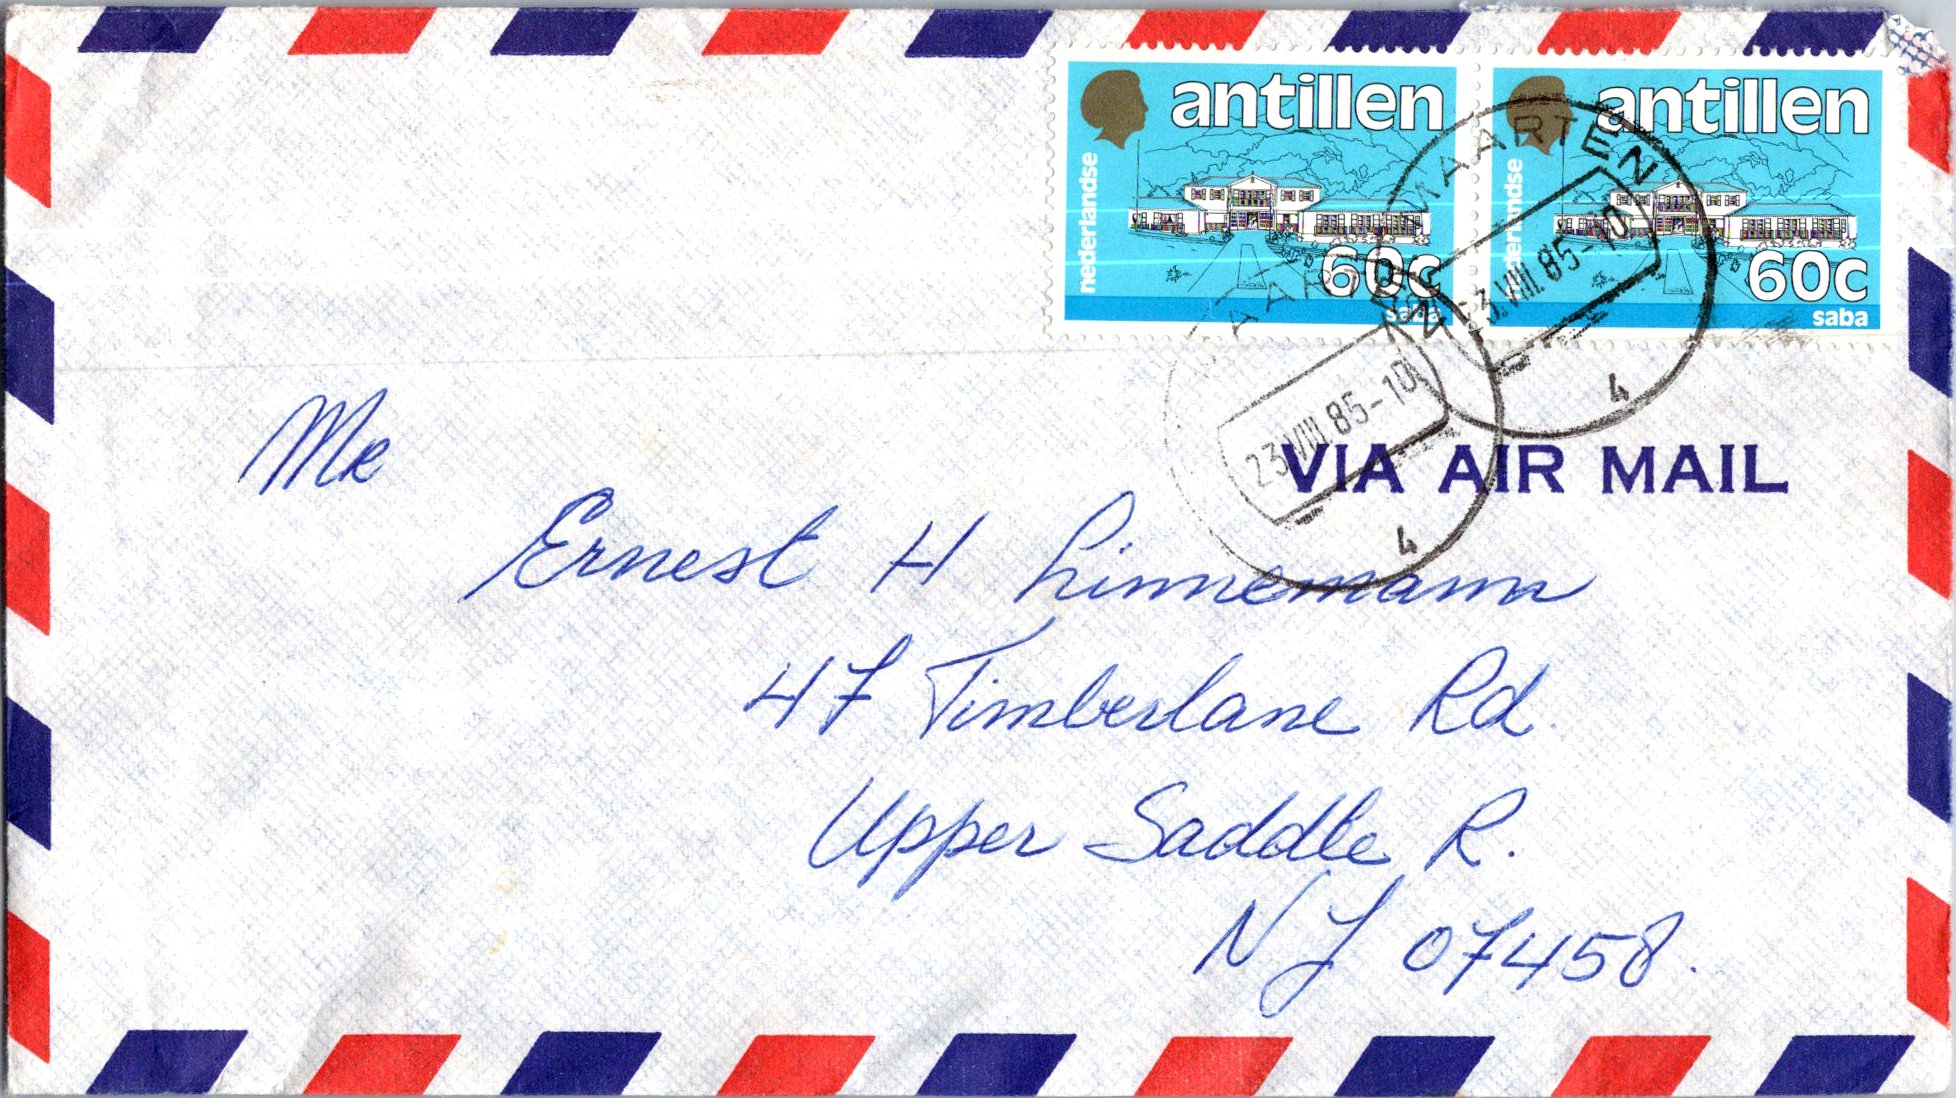 antillen
nederlandse
60c
saba
antillen
nederlandse
60c
saba
MAARTEN
23.VIII.85-10
4
MAARTEN
23.VIII.85-10
4
VIA AIR MAIL
Mr
Ernest H Linnemann
47 Timberlane Rd.
Upper Saddle R.
NJ 07458.